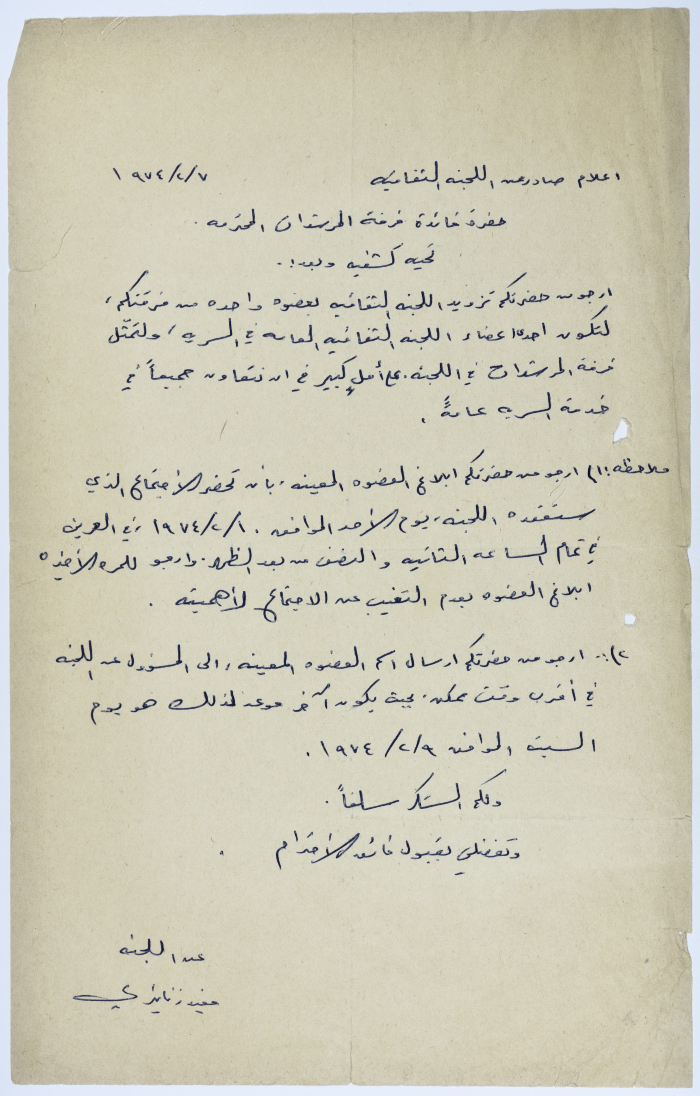 اعلام صادر عن اللجنه الثقافيه ١٩٧٤/٢/٧
حضرة قائدة فرقة المرشدات المحترمه .
تحيه كشفيه وبعد :.
ارجو من حضرتكم تزويد اللجنه الثقافيه بعضوه واحده من فرقتكم ،
لتكون احدى اعضاء اللجنه الثقافيه العامه في السريه ، ولتمثّل
فرقة المرشدات في اللجنه . على أملٍ كبير في ان نتعاون جميعاً في
خدمة السريه عامةً .
ملاحظه : ١) ارجو من حضرتكم ابلاغ العضوه المعينه ، بأن تحضر الاجتماع الذي
ستعقده اللجنه ، يوم الأحد الموافق ١٩٧٤/٢/١٠ ، في العرين
في تمام الساعه الثانيه والنصف من بعد الظهر . وارجو للمره الأخيره
ابلاغ العضوه بعدم التغيب عن الاجتماع لأهميته .
٢) :. ارجو من حضرتكم ارسال اسم العضوه المعينه ، الى المسؤول عن اللجنه
في أقرب وقت ممكن ، بحيث يكون آخر موعد لذلك هو يوم
السبت الموافق ١٩٧٤/٢/٩ .
ولكم الشكر سلفاً .
وتفضلي بقبول فائق الأحترام .
عن اللجنه